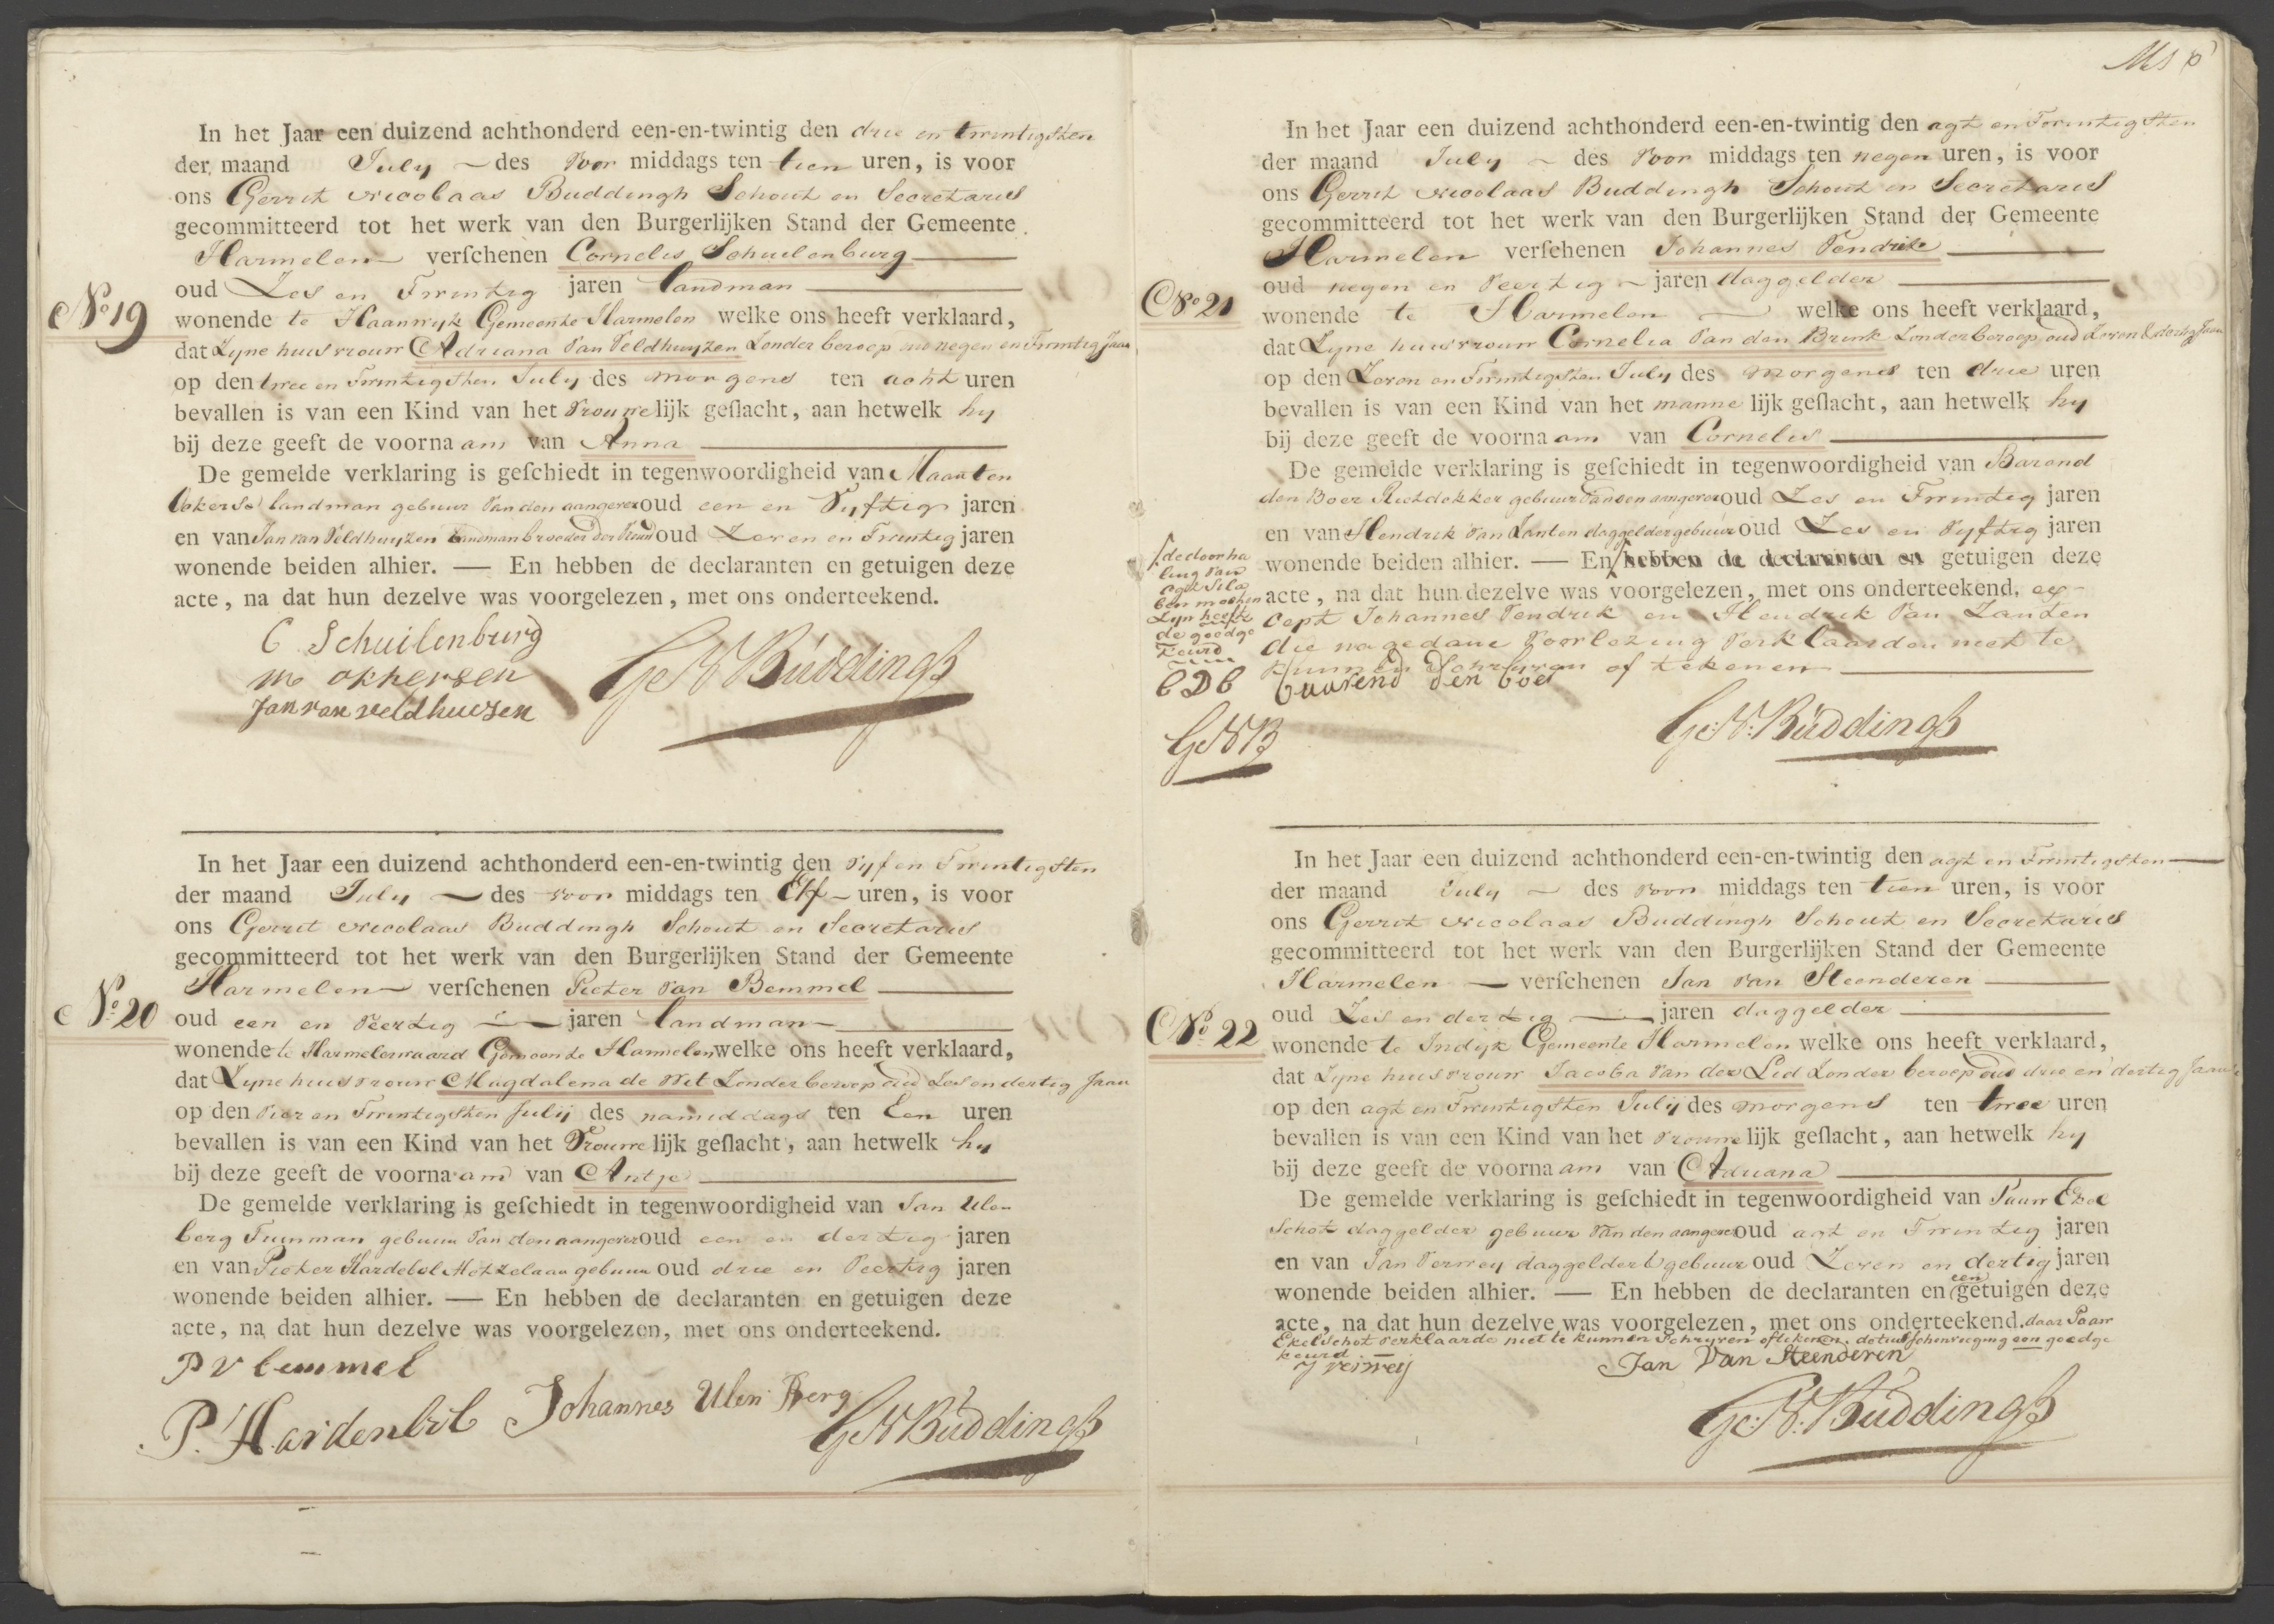 In het Jaar een duizend achthonderd een-en-twintig den drie en twintigsten
der maand July des voor middags ten tien uren, is voor
ons Gerrit Nicolaas Buddingh Schout en Secretaris
gecommitteerd tot het werk van den Burgerlijken Stand der Gemeente
Harmelen verschenen Cornelis Schuilenburg
oud Zes en Twintig jaren landman
No 19
wonende te Haanwyk Gemeente Harmelen welke ons heeft verklaard,
dat Zyne huisvrouw Adriana Van Veldhuyzen Zonder beroep negen en Twintig Jaar
op den twee en Twintigsten July des morgens ten acht uren
bevallen is van een Kind van het Vrouwelijk geslacht, aan hetwelk hy
bij deze geeft de voornaam van Anna
De gemelde verklaring is geschiedt in tegenwoordigheid van Maarten
landman gebuur Van den aangever oud een en Vyftig jaren
en van Jan van Veldhuyzen landman broeder der oud Zeven en Twintig jaren
wonende beiden alhier. — En hebben de declaranten en getuigen deze
acte, na dat hun dezelve was voorgelezen, met ons onderteekend.
C Schuilenburg
m okkersen
Jan van veldhuizen
G N Buddingh
In het Jaar een duizend achthonderd een-en-twintig den Vyf en Twintigsten
der maand July des voor middags ten Elf uren, is voor
ons Gerrit Nicolaas Buddingh Schout en Secretaris
gecommitteerd tot het werk van den Burgerlijken Stand der Gemeente
Harmelen verschenen Pieter Van Bemmel
No 20
oud een en Veertig jaren landman
wonende te Harmelerwaard Gemeente Harmelen welke ons heeft verklaard,
dat Zyne huisvrouw Magdalena de Wit Zonder beroep oud Zes en dertig Jaar
op den Vier en Twintigsten Julij des namiddags ten Een uren
bevallen is van een Kind van het Vrouwelijk geslacht, aan hetwelk hy
bij deze geeft de voornaam van Antje
De gemelde verklaring is geschiedt in tegenwoordigheid van Jan Ulen
berg Tuinman gebuur Van den aangever oud een en dertig jaren
en van Pieter Hardebol Metzelaar gebuur oud drie en Veertig jaren
wonende beiden alhier. — En hebben de declaranten en getuigen deze
acte, na dat hun dezelve was voorgelezen, met ons onderteekend.
P v bemmel
P. Hardenbol Johannes Ulen Berg
G N Buddingh
In het Jaar een duizend achthonderd een-en-twintig den agt en Twintigsten
der maand July des Voor middags ten negen uren, is voor
ons Gerrit Nicolaas Buddingh Schout en Secretaris
gecommitteerd tot het werk van den Burgerlijken Stand der Gemeente
Harmelen verschenen Johannes Vendrik
oud negen en Veertig jaren daggelder
No 21
wonende te Harmelen welke ons heeft verklaard,
dat Zyne huisvrouw Cornelia Van den Brink Zonder beroep oud Zeven & dertig Jaar
op den Zeven en Twintigsten July des morgens ten drie uren
bevallen is van een Kind van het mannelijk geslacht, aan hetwelk hy
bij deze geeft de voornaam van Cornelis
De gemelde verklaring is geschiedt in tegenwoordigheid van Barend
den Boer Rietdekker gebuur Van den aangever oud Zes en Twintig jaren
en van Hendrik Van Zanten daggelder gebuur oud Zes en Vyftig jaren
wonende beiden alhier. — En hebben de declaranten en getuigen deze
acte, na dat hun dezelve was voorgelezen, met ons onderteekend. ex-
cept Johannes Vendrik en Hendrik Van Zanten
die na gedane Voorlezing Verklaarden niet te
kunnen Schryven of tekenen
de doorha
ling Van
agt Sila
ben
Zyn heeft
de goedge
keurd
B D B
G N B
baarend den boer
G: N: Buddingh
In het Jaar een duizend achthonderd een-en-twintig den agt en Twintigsten
der maand July des voor middags ten tien uren, is voor
ons Gerrit Nicolaas Buddingh Schout en Secretaris
gecommitteerd tot het werk van den Burgerlijken Stand der Gemeente
Harmelen verschenen Jan Van Steenderen
oud Zes en dertig jaren daggelder
No 22
wonende te Indijk Gemeente Harmelen welke ons heeft verklaard,
dat Zyne huisvrouw Jacoba Van der Lid Zonder beroep oud drie en dertig Jaar
op den agt en Twintigsten Julij des morgens ten twee uren
bevallen is van een Kind van het vrouwelijk geslacht, aan hetwelk hy
bij deze geeft de voornaam van Adriana
De gemelde verklaring is geschiedt in tegenwoordigheid van Paau Ekel
Schot daggelder gebuur Van den aangever oud agt en Twintig jaren
en van Jan Verwey daggelder gebuur oud Zeven en dertig jaren
wonende beiden alhier. — En hebben de declaranten en een getuigen deze
acte, na dat hun dezelve was voorgelezen, met ons onderteekend. daar Paau
Ekelschot verklaarde niet te kunnen Schryven of tekenen. een goedge
keurd
J verweij
Jan Van Steenderen
G: N: Buddingh